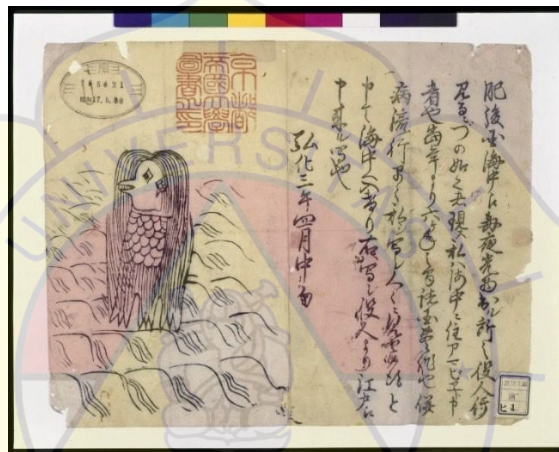 肥後国海中江毎夜光物出ル所之役人行
見るニづの如之者現ス私ハ海中ニ住アマビヱト申
者也当年より六ヶ年之間諸国豊作也併
病流行早々私シ写シ人々ニ見セ候得と
申て海中へ入けり右ハ写シ役人より江戸江
申来ル写也
弘化三年四月中旬
京都
帝國大學
圖書之印